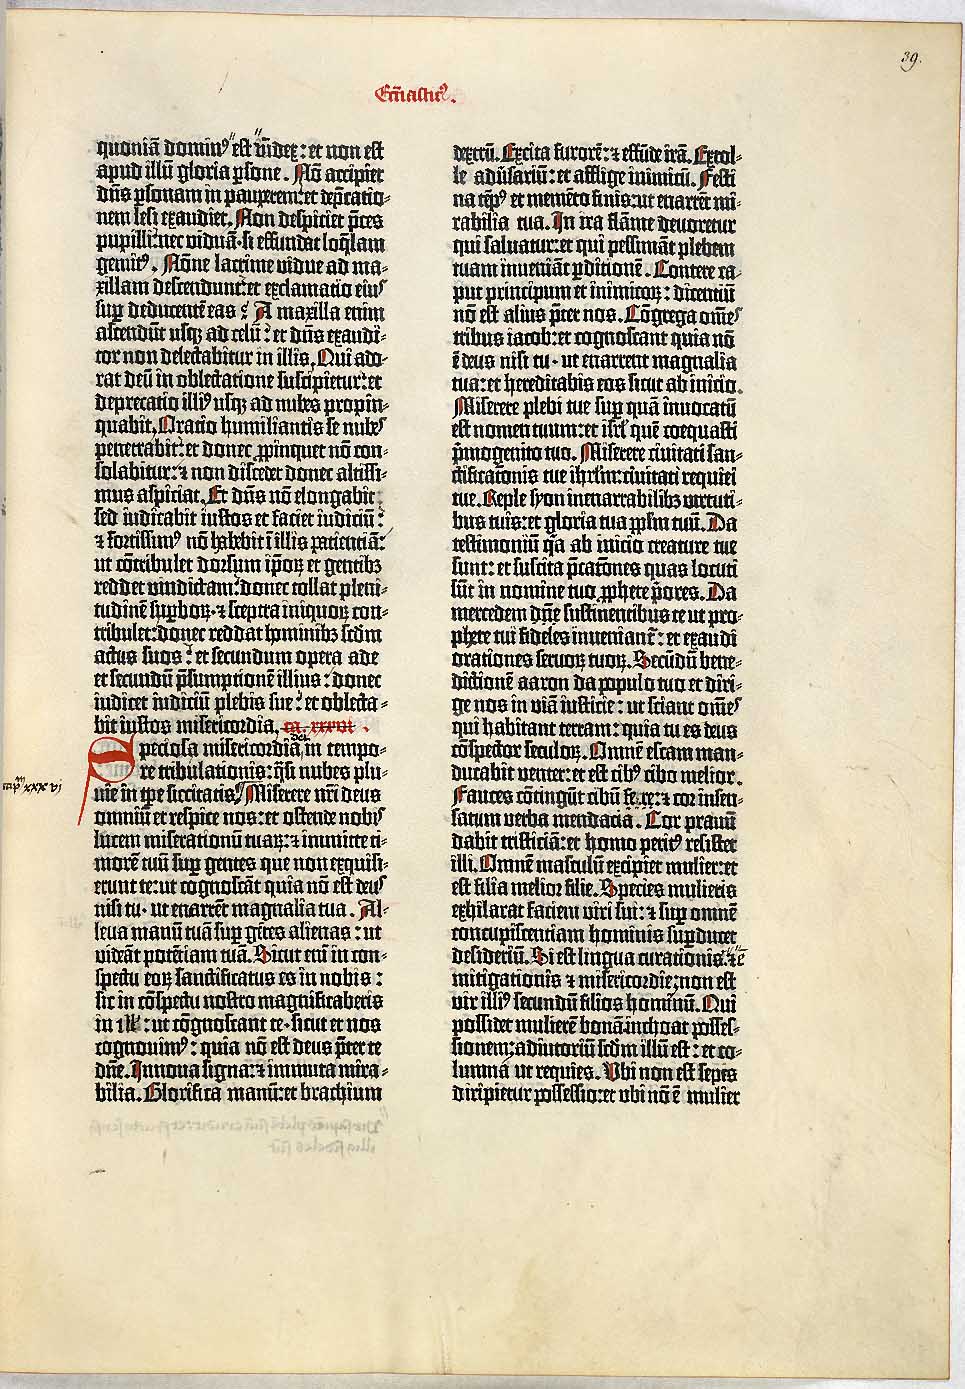 39.
Ecc̄iasticꝰ.
quoniā dominꝰ est iudex: et non est
apud illū gloria ꝑsone. Nō accipiet
dn̄s ꝑsonam in pauperem: et dep̄catio-
nem lesi exaudiet. Non despiciet p̄ces
pupilli: nec viduā· si effundat loq̄lam
gemitꝰ. Nōne lacrime vidue ad ma-
xillam descendunt: et exclamatio eiuꝰ
suꝑ deducentē eas? A maxilla enim
ascendūt usqꝫ ad celū: et dn̄s exaudi-
tor non delectabitur in illis. Qui ado-
rat deū in oblectatione suscipietur: et
deprecatio illiꝰ usqꝫ ad nubes propin-
quabit. Oratio humiliantis se nubes
penetrabit: et donec ꝓpinquet nō con-
solabitur: ⁊ non discedet donec altissi-
mus aspiciat. Et dn̄s nō elongabit:
sed iudicabit iustos et faciet iudiciū:
⁊ fortissimꝰ nō habebit ī illis patientiā:
ut cōtribulet dorsum ip̄oꝝ et gentibꝫ
reddet vindictam: donec tollat pleni-
tudinē suꝑboꝝ· ⁊ sceptra iniquoꝝ con-
tribulet: donec reddat hominibꝫ scd̄m
actus suos: et secundum opera ade
et secundū p̄sumptionē illius: donec
iudicet iudiciū plebis sue: et oblecta-
bit iustos misericordia. ca. xxxvi.
Speciosa misericordia dei in tempo-
re tribulationis: q̄si nubes plu-
uie in tꝑe siccitatis. Miserere nr̄i deus
omniū et respice nos: et ostende nobis
lucem miserationū tuaꝝ: ⁊ immitte ti-
morē tuū suꝑ gentes que non exquisi-
erunt te: ut cognoscāt quia nō est deus
nisi tu· ut enarrēt magnalia tua. Al-
leua manū tuā suꝑ gētes alienas: ut
videāt potētiam tuā. Sicut eni in con-
spectu eoꝝ sanctificatus es in nobis:
sic in cōspectu nostro magnificaberis
in illis: ut cōgnoscant te· sicut et nos
cognouimꝰ: quia nō est deus p̄ter te
dn̄e. Innoua signa: ⁊ immuta mira-
bilia. Glorifica manū: et brachium
cap̄m xxxvi
dextrū. Excita furorē: ⁊ effūde irā. Extol-
le adūsariū: et afflige inimicū. Festi
na tēpꝰ et memēto finis: ut enarrēt mi-
rabilia tua. In ira flāme deuoretur
qui saluatur: et qui pessimāt plebem
tuam inueniāt ꝑditionē. Contere ca-
put principum et inimicoꝝ: dicentiū
nō est alius p̄ter nos. Cōgrega om̄es
tribus iacob: et cognoscant quia nō
ē deus nisi tu· ut enarrent magnalia
tua: et hereditabis eos sicut ab inicio.
Miserere plebi tue suꝑ quā inuocatū
est nomen tuum: et isrl̄ quē coequasti
p̄mogenito tuo. Miserere ciuitati san-
ctificat̄onis tue ihrlm̄: ciuitati requiei
tue. Reple syon inenarrabilibꝫ virtuti-
bus tuis: et gloria tua ꝓpl̄m tuū. Da
testimoniū qꝛ ab inicio creature tue
sunt: et suscita p̄cat̄ones quas locuti
sūt in nomine tuo ꝓphete p̄ores. Da
mercedem dn̄e sustinentibus te ut pro-
phete tui fideles inueniant̄: et exaudi
orationes seruoꝝ tuoꝝ. Secūdū bene-
dictionē aaron da populo tuo et diri-
ge nos in viā iusticie: ut sciant om̄es
qui habitant terram: quia tu es deus
cōspector seculoꝝ. Omnē escam man-
ducabit venter: et est cibꝰ cibo melior.
Fauces cōtingūt cibū fere: ⁊ cor insen-
satum verba mendacia. Cor prauū
dabit tristiciā: et homo peritꝰ resistet
illi. Omnē masculū excipiet mulier: et
est filia melior filie. Species mulieris
exhilarat faciem viri sui: ⁊ suꝑ omnē
concupiscentiam hominis suꝑducet
desideriū. Si est lingua curationis· ⁊ ē
mitigationis ⁊ misericordie: non est
vir illiꝰ secundū filios hominū. Qui
possidet mulierē bonā: inchoat posses-
sionem: adiutoriū scd̄m illū est: et co-
lumna ut requies. Ubi non est sepes
diripietur possessio: et ubi nō ē mulier